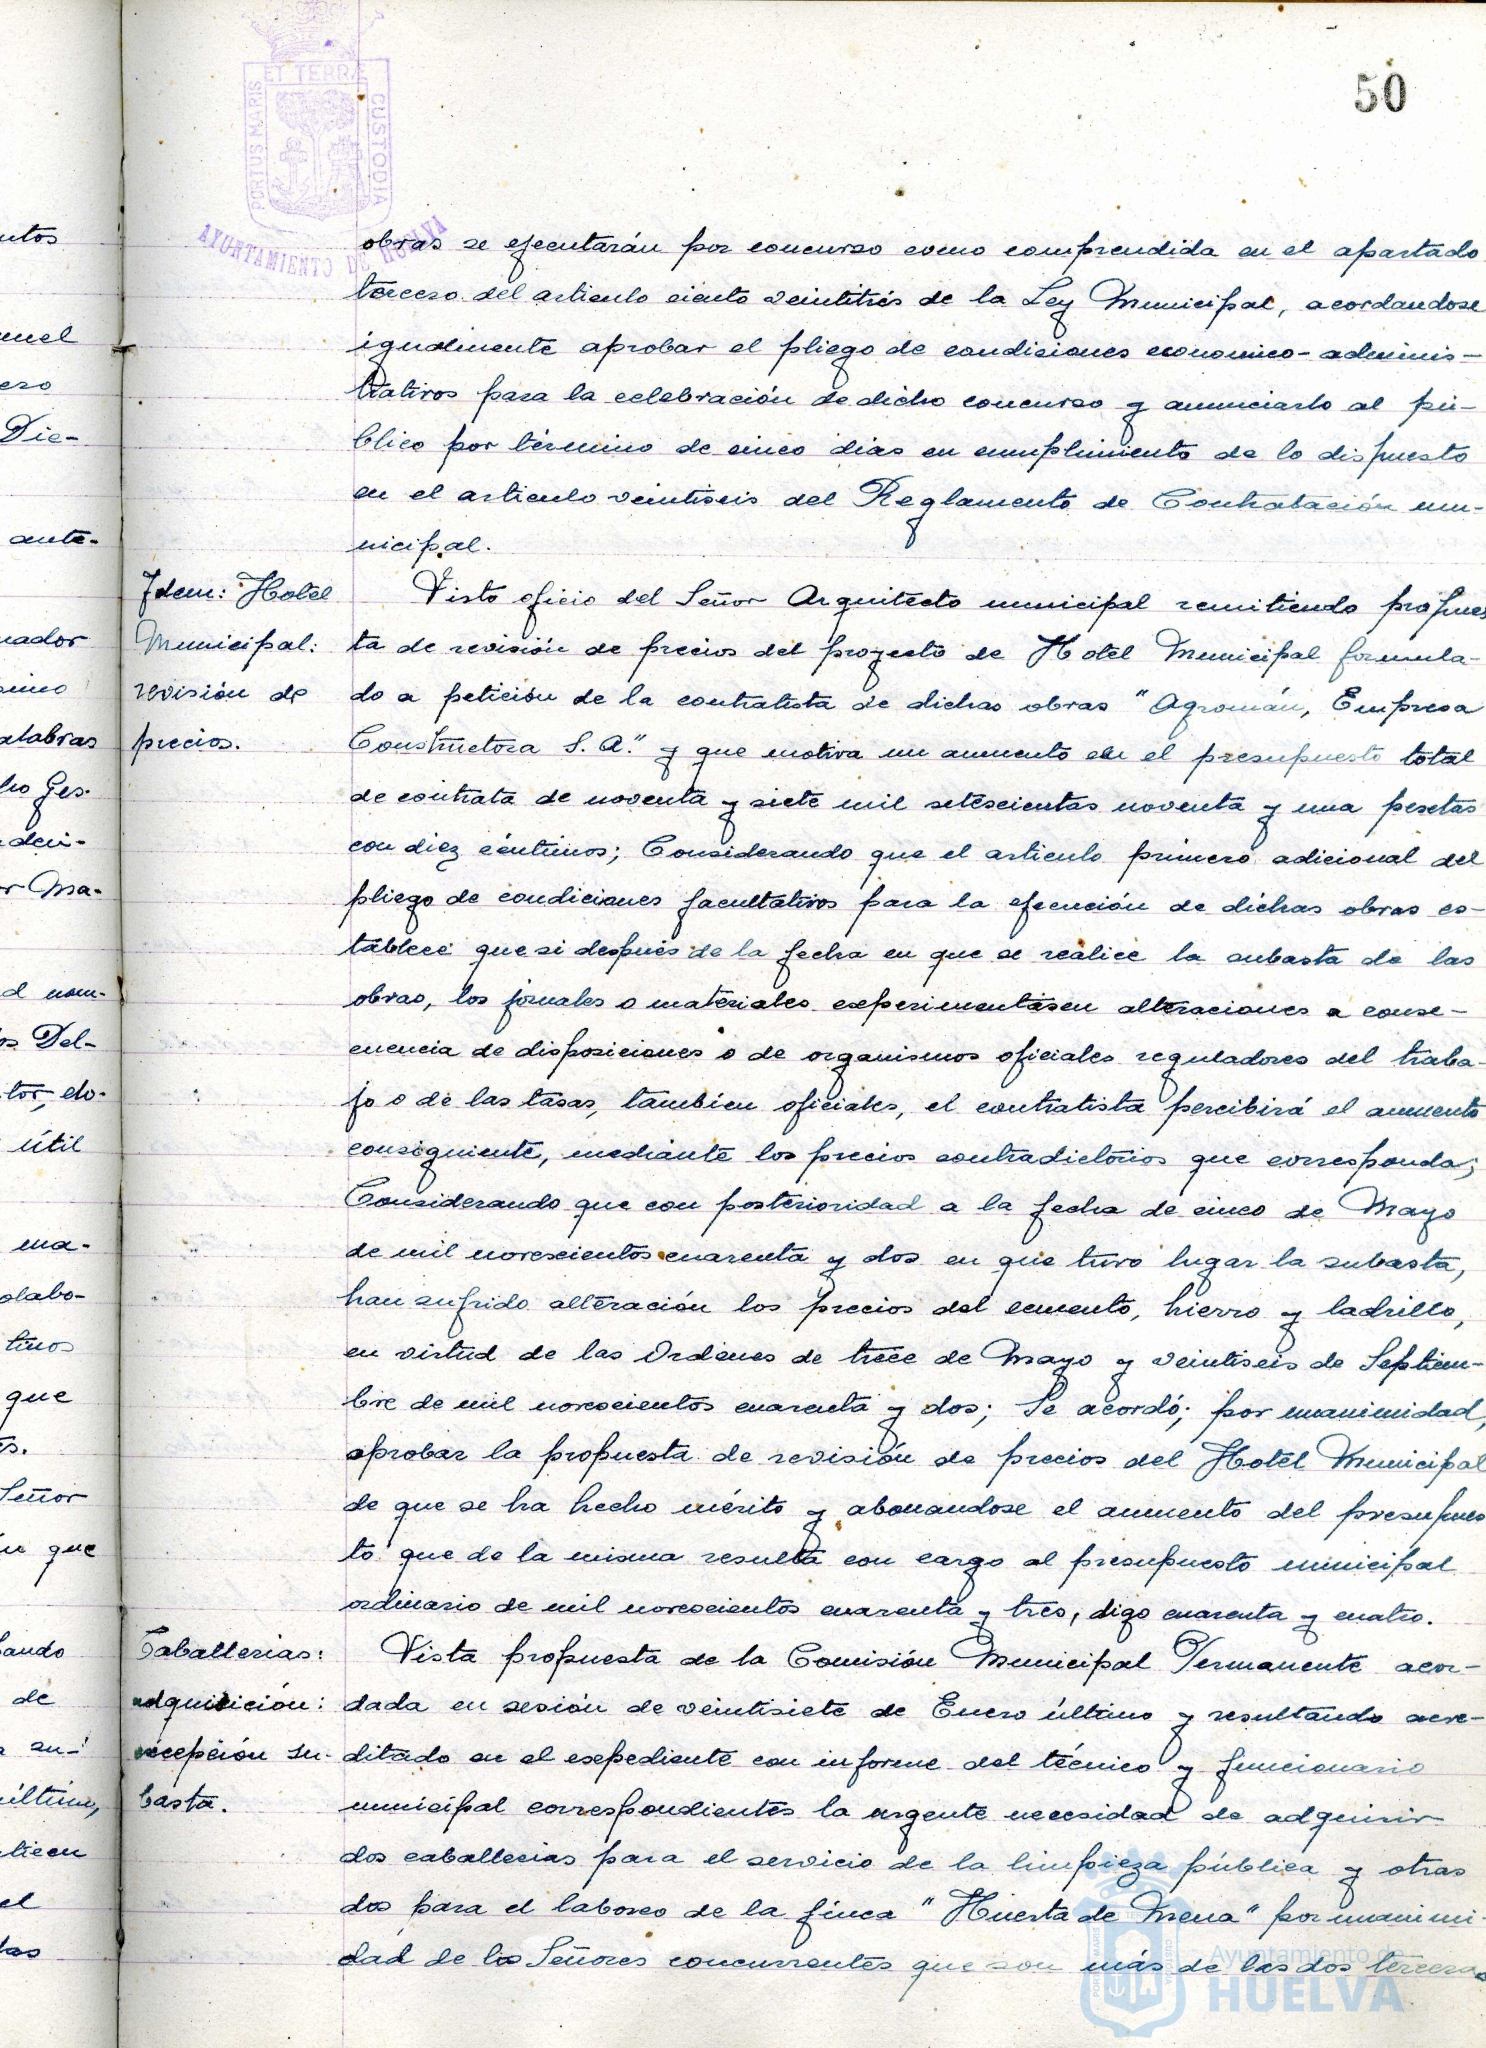 50
PORTUS MARIS ET TERRÆ CUSTODIA
AYUNTAMIENTO DE HUELVA
obras se ejecutarán por concurso como comprendida en el apartado
tercero del articulo ciento veintitrés de la Ley Municipal, acordandose
igualmente aprobar el pliego de condiciones economico-adminis-
trativos para la celebración de dicho concurso y anunciarlo al pú-
blico por término de cinco dias en cumplimiento de lo dispuesto
en el articulo veintiseis del Reglamento de Contratación mu-
nicipal.
Idem: Hotel
Municipal:
revisión de
precios.
Visto oficio del Señor Arquitecto municipal remitiendo propues
ta de revisión de precios del proyecto de Hotel Municipal formula-
do a petición de la contratista de dichas obras "Agromán, Empresa
Constructora S. A." y que motiva un aumento en el presupuesto total
de contrata de noventa y siete mil setescientas noventa y una pesetas
con diez céntimos; Considerando que el articulo primero adicional del
pliego de condiciones facultativos para la ejecución de dichas obras es-
tablece que si después de la fecha en que se realice la subasta de las
obras, los jornales o materiales experimentasen alteraciones a conse-
cuencia de disposiciones o de organismos oficiales reguladores del traba-
jo o de las tasas, tambien oficiales, el contratista percibirá el aumento
consiguiente, mediante los precios contradictorios que corresponda;
Considerando que con posterioridad a la fecha de cinco de Mayo
de mil novescientos cuarenta y dos en que tuvo lugar la subasta,
han sufrido alteración los precios del cemento, hierro y ladrillo,
en virtud de las Ordenes de trece de Mayo y veintiseis de Septiem-
bre de mil novescientos cuarenta y dos; Se acordó; por unanimidad,
aprobar la propuesta de revisión de precios del Hotel Municipal
de que se ha hecho mérito y abonandose el aumento del presupues
to que de la misma resulta con cargo al presupuesto municipal
ordinario de mil novescientos cuarenta y tres, digo cuarenta y cuatro.
Caballerias:
adquisición:
excepción su-
basta.
Vista propuesta de la Comisión Municipal Permanente acor-
dada en sesión de veintisiete de Enero último y resultando acre-
ditado en el expediente con informe del técnico y funcionario
municipal correspondientes la urgente necesidad de adquirir
dos caballerias para el servicio de la limpieza pública y otras
dos para el laboreo de la finca "Huerta de Mena" por unanimi-
dad de los Señores concurrentes que son más de las dos terceras
Ayuntamiento de
HUELVA